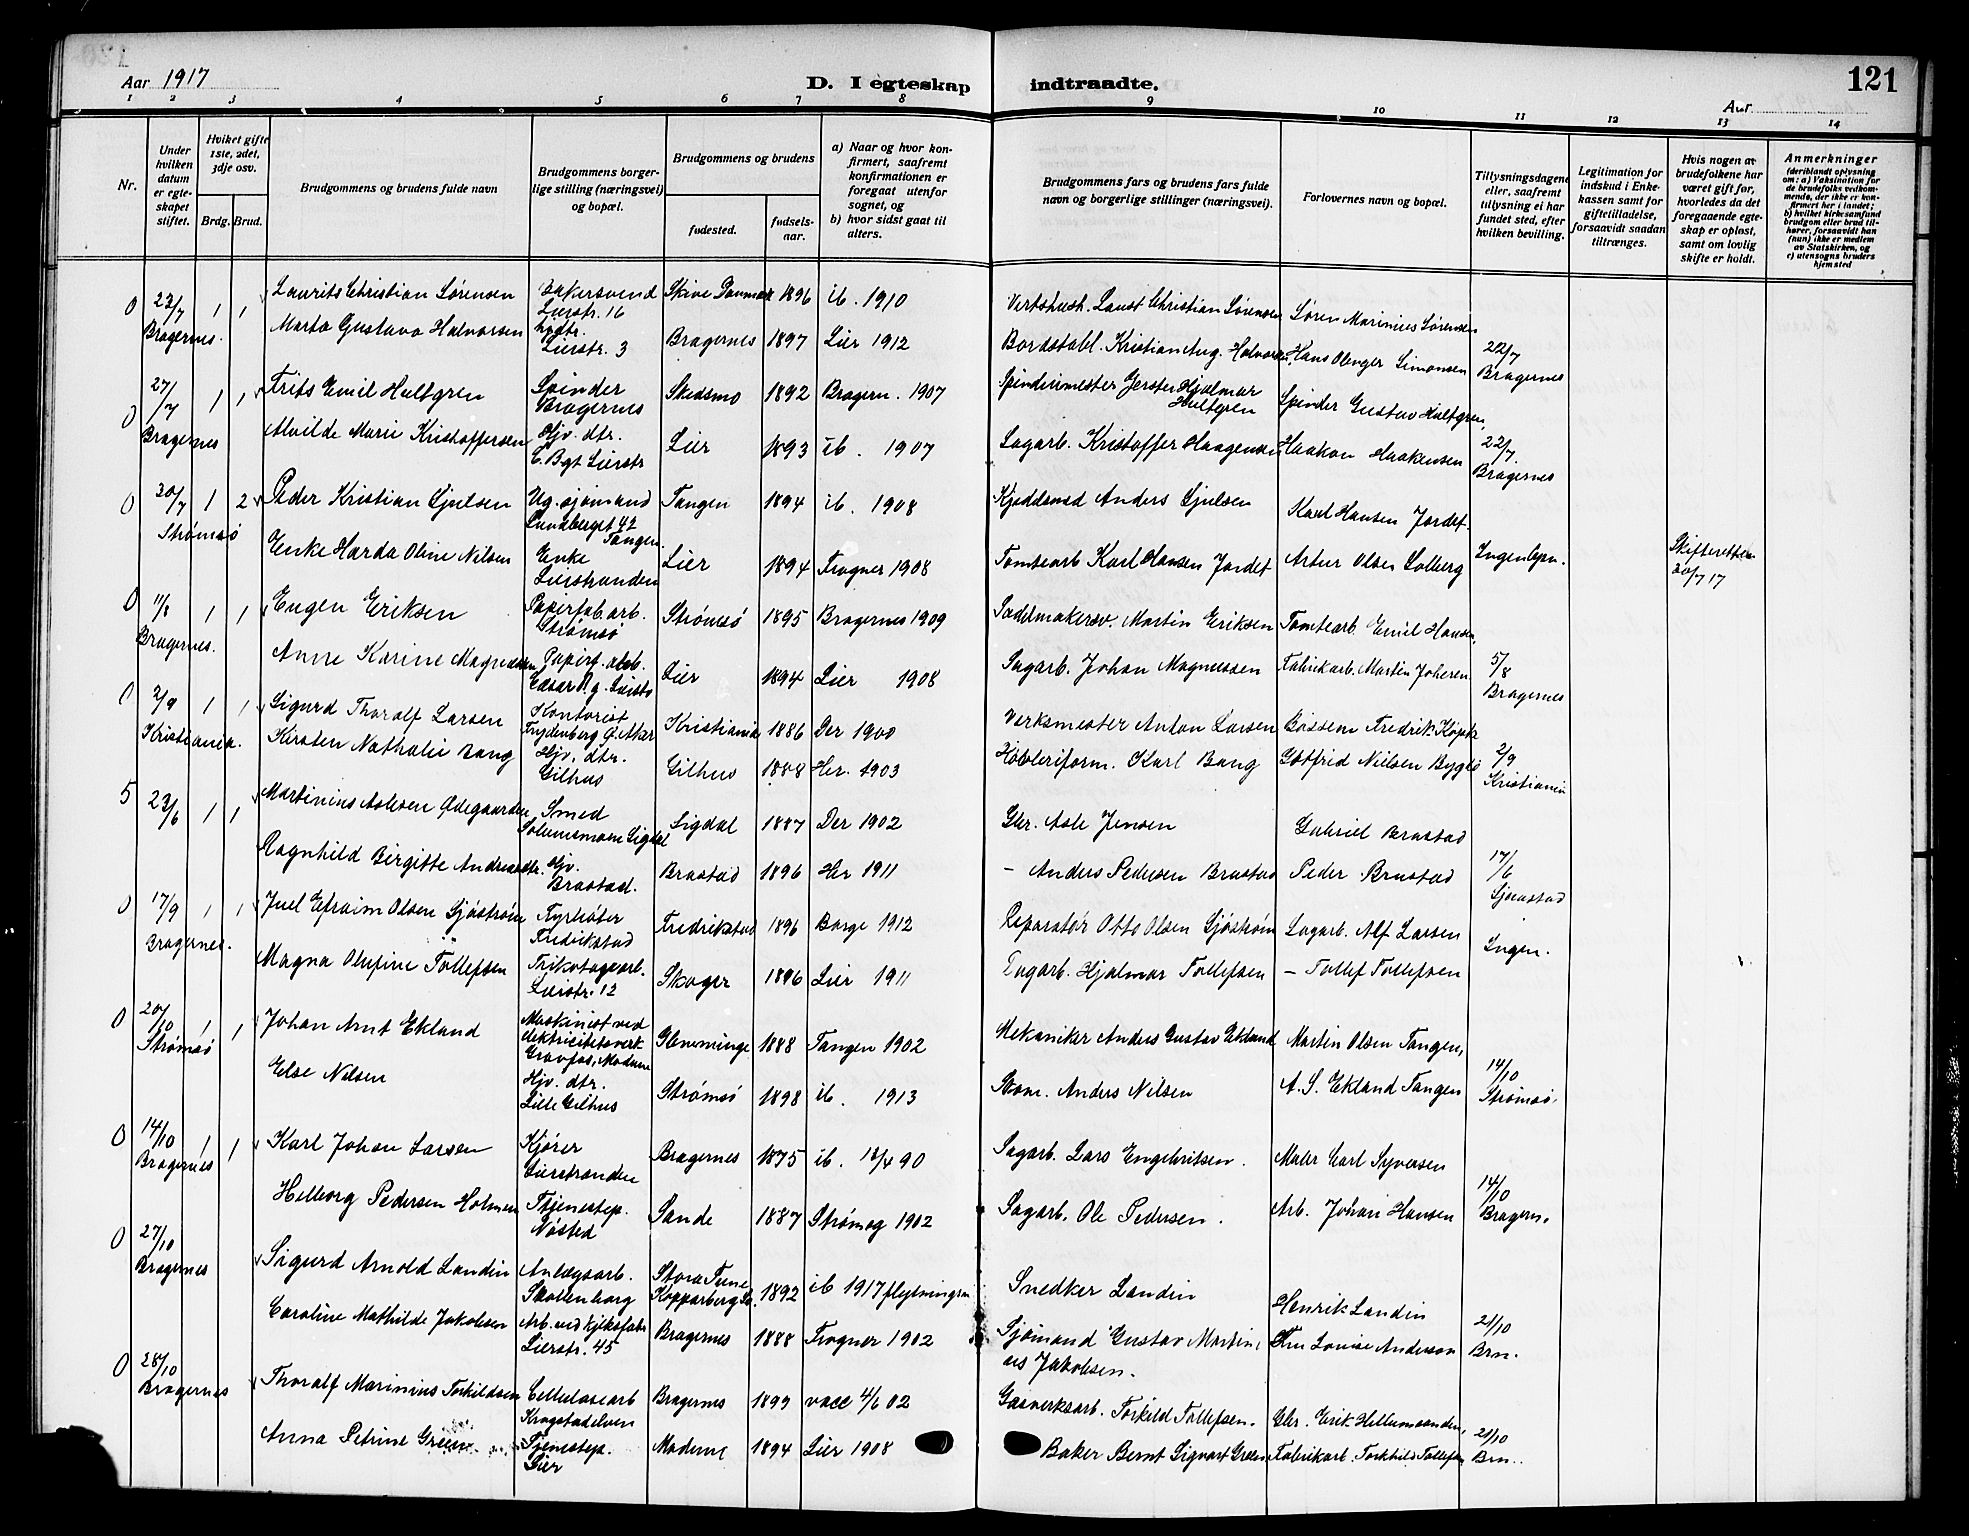 Aar 1917
D. I egteskap
indtraadte.
121
Aar
1 2 3 4 5 6 7 8 9 10 11 12 13 14
Nr.
Under hvilken datum er egteskapet stiftet.
Hvilket gifte 1ste, 2det, 3dje osv.
Brdg. Brud.
Brudgommens og brudens fulde navn
Brudgommens borgerlige stilling (næringsvei) og bopæl.
Brudgommens og brudens
fødested.
fødselsaar.
a) Naar og hvor konfirmert, saafremt konfirmationen er foregaat utenfor sognet, og
b) hvor sidst gaat til alters.
Brudgommens fars og brudens fars fulde navn og borgerlige stillinger (næringsvei).
Forlovernes navn og bopæl.
Tillysningsdagene eller, saafremt tillysning ei har fundet sted, efter hvilken bevilling.
Legitimation for indskud i Enkekassen samt for giftetilladelse, forsaavidt saadan tiltrænges.
Hvis nogen av brudefolkene har været gift før, hvorledes da det foregaaende egteskap er opløst, samt om lovlig skifte er holdt.
Anmerkninger (deriblandt oplysning om: a) Vaksination for de brudefolks vedkommende, der ikke er konfirmert her i landet; b) hvilket kirkesamfund brudgom eller brud tilhører, forsaavidt han (hun) ikke er medlem av Statskirken, og c) utensogns bruders hjemsted
0 23/7 Bragernes. 1 1 Laurits Christian Sørensen Bakersvend Lierstr. 16 Skive Danmark 1896 ib. 1910 Vertshush. Laust Christian Sørensen Søren Marinius Sørensen
Marta Gustava Halvorsen Lierstr. 3 Bragernes 1897 Lier 1912 Bordstabl. Kristian Aug. Halvorsen Hans Olenger Simonsen 22/7 Bragernes
0 27/7 Bragernes 1 1 Frits Emil Hultgren Spinder Bragernes Skedsmo 1892 Bragern. 1907 Spinderimester Hjalmar Hultgren Spinder Gustav Hultgren,
Alvilde Marie Kristoffersen Hjv. dtr. Lierstr Lier 1893 ib. 1907 Sagarb. Kristoffer Haagensen Haakon Haakensen 22/7. Bragernes
0 30/7 Strømsø 1 2 Peder Kristian Gjulsen Ug. sjømand Lundberget 42 Tangen Tangen 1894 ib. 1908 Anders Gjulsen Karl Hansen Jordet
Enke Harda Oline Nilsen Enke Lierstranden Lier 1894 Frogner 1908 Tomtearb Karl Hansen Jordet Artur Olsen Solberg Ingen lysn. Skifteretten 30/7 17
0 11/8 Bragernes. 1 1 Eugen Eriksen Papirfab.arb. Strømsø Strømsø 1895 Bragernes 1909 Sadelmakersv. Martin Eriksen Tomtearb. Emil Hansen,
Anne Karine Magnussen Papirf. arb. Lier 1894 Lier 1908 Sagarb. Johan Magnussen Fabrikarb. Martin Johsen 5/8 Bragernes
0 2/9 Kristiania. 1 1 Sigurd Thoralf Larsen Kontorist Frydenberg Ø. Aker Kristiania 1886 Der 1900 Verksmester Anton Larsen Fredrik
Kirsten Nathalie Bang Hjv. dtr. Gilhus Gilhus 1888 Her. 1903 Høvleriform. Karl Bang Gotfrid Nielsen 2/9 Kristiania
5 23/6 1 1 Martinius Aslesen Ødegaarden Smed Solumsmoen Sigdal Sigdal 1887 Der 1902 Gbr. Asle Jensen Gabriel Brastad
Ragnhild Birgitte Andreasdtr. Hjv. Brastad. Brastad 1896 Her 1911 – Anders Pedersen Brastad Peder Brastad 17/6 Sjaastad
0 17/9 Bragernes. 1 1 Juel Efraim Olsen Sjøstrøm Fyrbøter Fredrikstad Fredrikstad 1896 Borge 1912 Reparatør Otto Olsen Sjøstrøm Sagarb. Alf Larsen
Magna Olufine Tollefsen Trikotagearb. Lierstr. 12 Skoger 1896 Lier 1911 Sagarb. Hjalmar Tollefsen – Tollef Tollefsen Ingen.
0 20/10 Strømsø 1 1 Johan Arnt Ekland Maskinist ved elektricitetsverk Gravfos, Modum Glemminge 1888 Tangen 1902 Mekaniker Anders Gustav Ekland Martin Olsen Tangen,
Else Nilsen Hjv. dtr. Lille Gilhus Strømsø 1898 ib. 1913 Anders Nilsen A. S. Ekland Tangen 14/10 Strømsø.
0 14/10 Bragernes 1 1 Karl Johan Larsen Kjører Lierstranden Bragernes 1875 ib. 18/4 90 Sagarb. Lars Engebritsen. Maler Carl Syversen
Helborg Pedersen Holmen Tjenestep. Nøsted Sande 1887 Strømsg 1902 Sagarb. Ole Pedersen. Arb. Johan Hansen 14/10 Bragern.
0 27/10 Bragernes Sigurd Arnold Landin Anlægsarb. Skollenborg Stora Tuna Kopparberg 1892 ib 1917 flytningsa Snedker Landin Henrik Landin
Caroline Mathilde Jakobsen Arb. ved kjeksfabr Lierstr. 45 Bragernes 1888 Frogner 1902 Sjømand Gustav Martinius Jakobsen. Fru Louise Anderson 21/10 Brn.
0 28/10 Bragernes Thoralf Marinius Torkildsen Cellulosearb Krogstadelven Bragernes 1899 vacc 4/6 02 Gasverksarb. Torkild Tollefsen. Gbr. Erik
Anna Petrine Green Tjenestep. Lier Modum 1894 Lier 1908 Baker Bernt Sigvart Green Fabrikarb. Torkild Tollefsen 21/10 Brn.